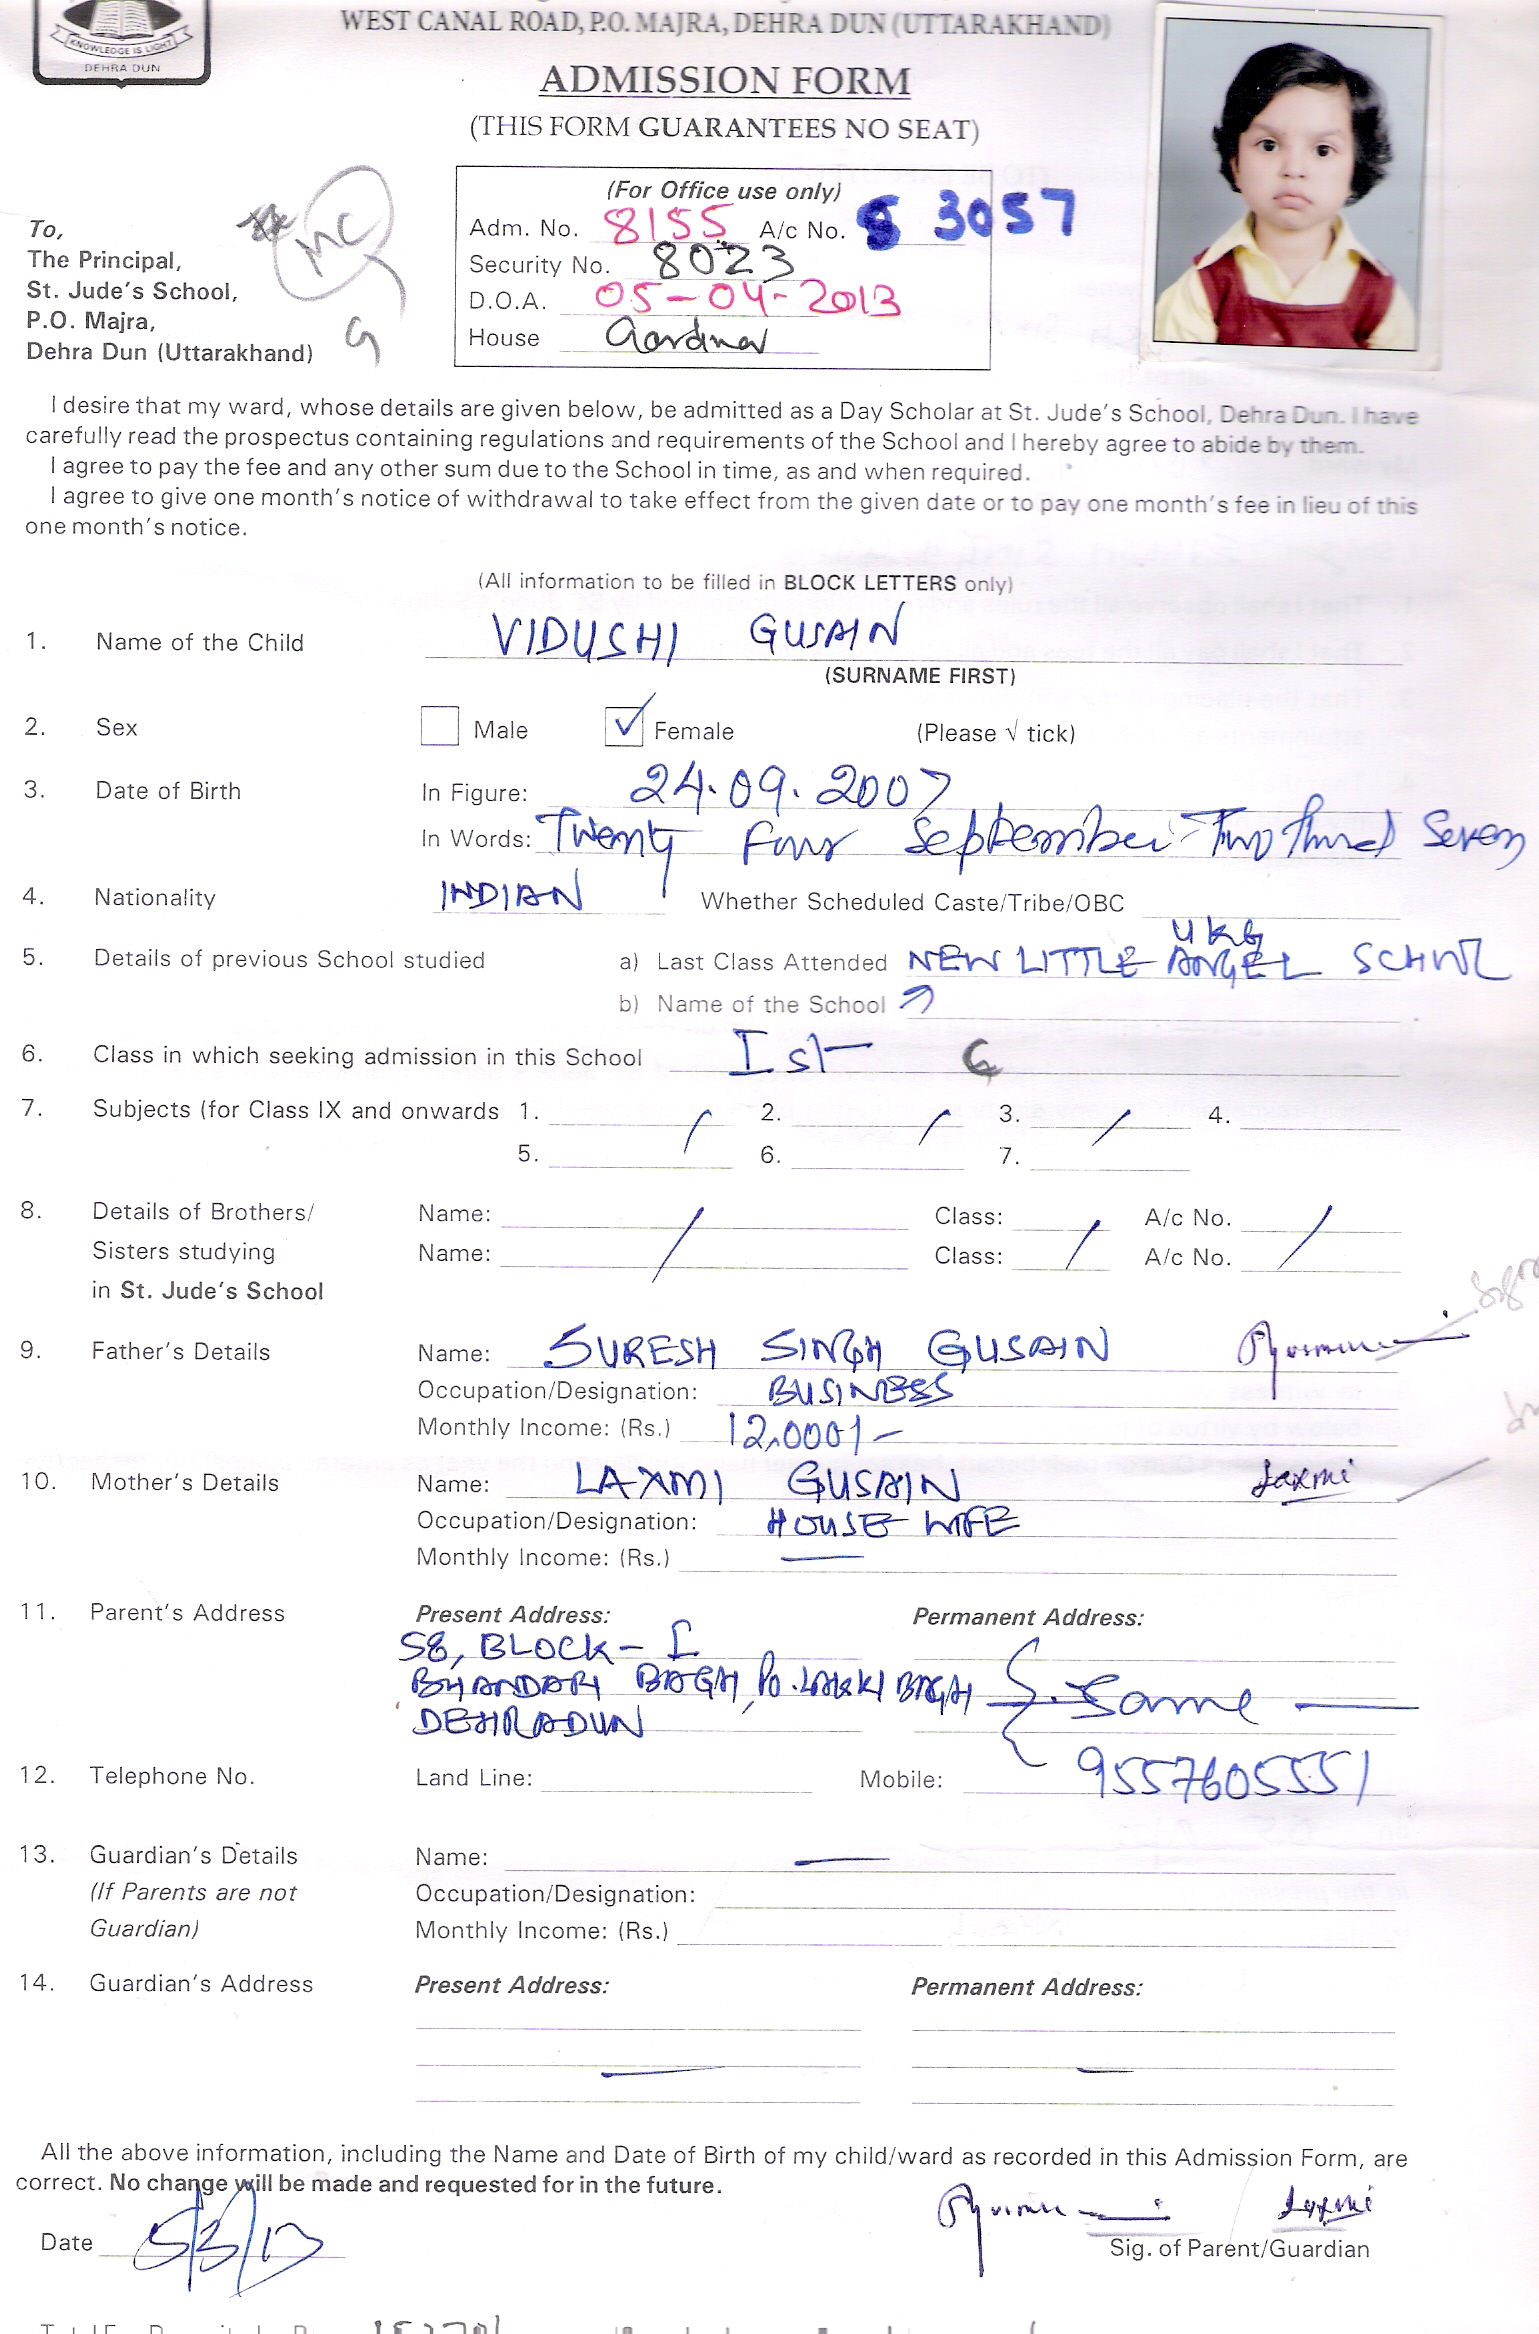 KNOWLEDGE IS LIGHT
DEHRA DUN
WEST CANAL ROAD, P.O. MAJRA, DEHRA DUN (UTTARAKHAND)
ADMISSION FORM
(THIS FORM GUARANTEES NO SEAT)
(For Office use only)
Adm. No. 8155 A/c No. S 3057
Security No. 8023
D.O.A. 05-04-2013
House
MC
G
To,
The Principal,
St. Jude's School,
P.O. Majra,
Dehra Dun (Uttarakhand)
I desire that my ward, whose details are given below, be admitted as a Day Scholar at St. Jude's School, Dehra Dun. I have
carefully read the prospectus containing regulations and requirements of the School and I hereby agree to abide by them.
I agree to pay the fee and any other sum due to the School in time, as and when required.
I agree to give one month's notice of withdrawal to take effect from the given date or to pay one month's fee in lieu of this
one month's notice.
(All information to be filled in BLOCK LETTERS only)
1. Name of the Child VIDUSHI GUSAIN
(SURNAME FIRST)
2. Sex Male ✓ Female (Please √ tick)
3. Date of Birth In Figure: 24.09.2007
In Words: Twenty Four September Two Seven
4. Nationality INDIAN Whether Scheduled Caste/Tribe/OBC
UKG
5. Details of previous School studied a) Last Class Attended NEW LITTLE ANGEL SCHOOL
b) Name of the School
6. Class in which seeking admission in this School Ist C
7. Subjects (for Class IX and onwards 1. 2. 3. 4.
5. 6. 7.
8. Details of Brothers/ Name: Class: A/c No.
Sisters studying Name: Class: A/c No.
in St. Jude's School
9. Father's Details Name: SURESH SINGH GUSAIN
Occupation/Designation: BUSINESS
Monthly Income: (Rs.) 12,000/-
10. Mother's Details Name: LAXMI GUSAIN Laxmi
Occupation/Designation: HOUSE WIFE
Monthly Income: (Rs.) —
11. Parent's Address Present Address: Permanent Address:
58, BLOCK - I
BHANDARI BAGH, Po. LAKKI BAGH Same
DEHRADUN
12. Telephone No. Land Line: Mobile: 9557605551
13. Guardian's Details Name: —
(If Parents are not Occupation/Designation:
Guardian) Monthly Income: (Rs.)
14. Guardian's Address Present Address: Permanent Address:
All the above information, including the Name and Date of Birth of my child/ward as recorded in this Admission Form, are
correct. No change will be made and requested for in the future.
Date 5/3/13 Laxmi
Sig. of Parent/Guardian